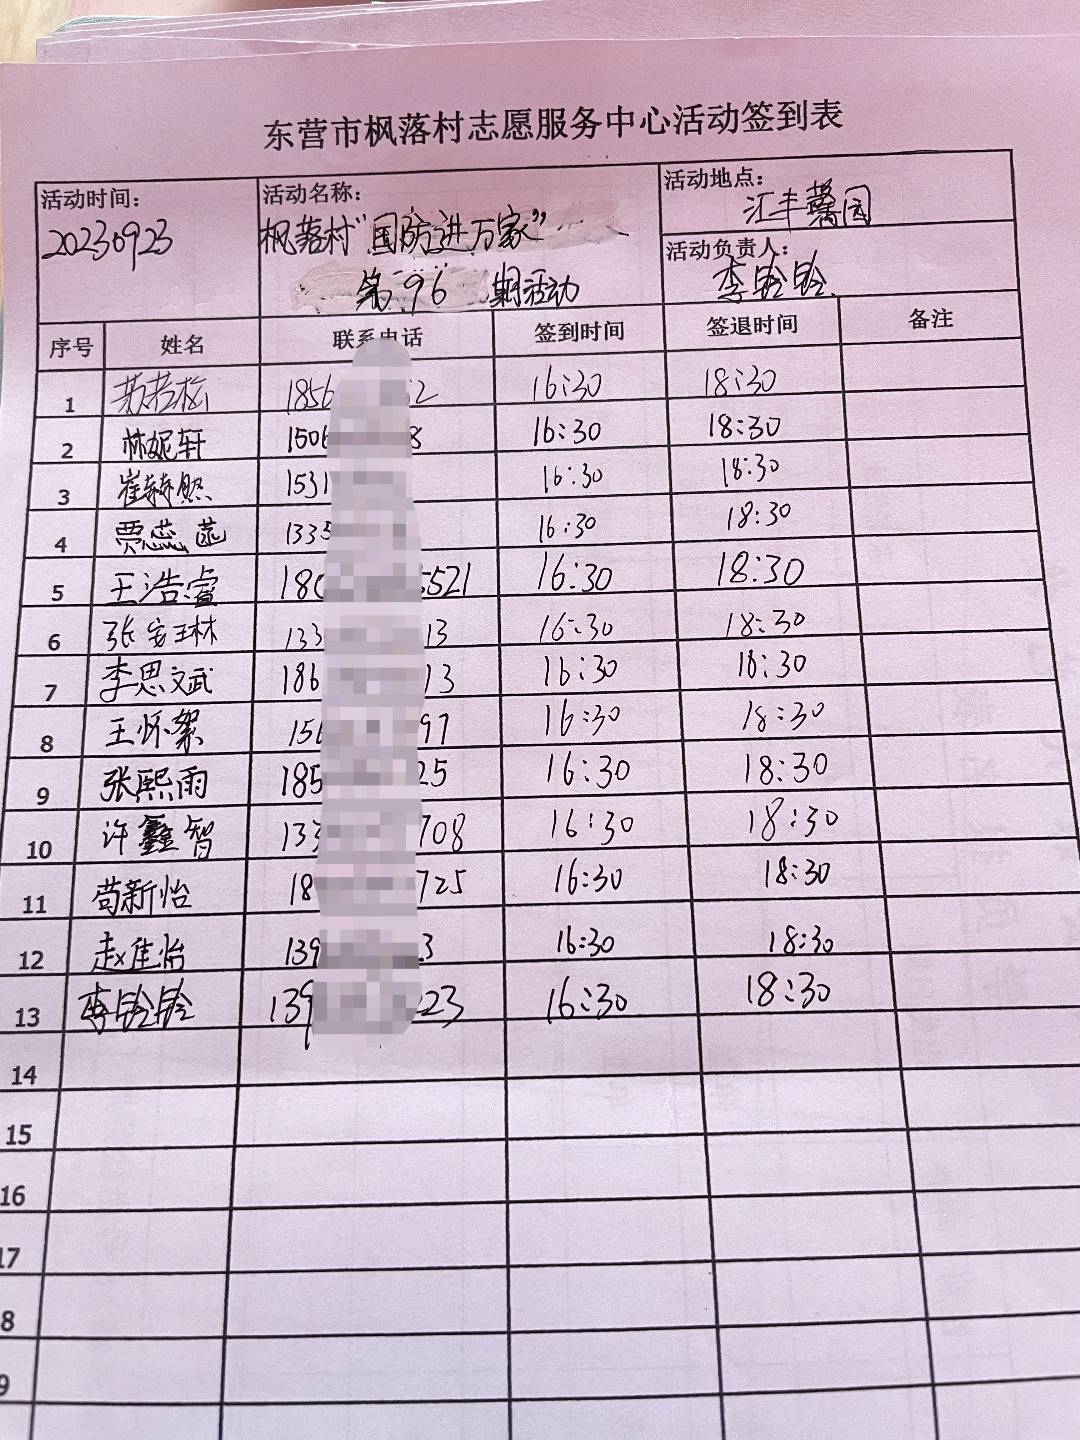 东营市枫落村志愿服务中心活动签到表
活动时间: 活动名称: 活动地点:
20230923 枫落村"国防进万家" 汇丰馨园
第 96 期活动 活动负责人: 李铃铃
序号 姓名 联系电话 签到时间 签退时间 备注
1 1856 2 16:30 18:30
2 林妮轩 1506 8 16:30 18:30
3 崔赫然 1531 16:30 18:30
4 贾蕊菡 1335 16:30 18:30
5 王浩睿 180 5521 16:30 18:30
6 张家琳 133 13 16:30 18:30
7 李思文武 186 13 16:30 18:30
8 王怀絮 156 97 16:30 18:30
9 张熙雨 185 25 16:30 18:30
10 许鑫智 133 708 16:30 18:30
11 苟新怡 18 725 16:30 18:30
12 赵佳怡 139 3 16:30 18:30
13 李铃铃 139 23 16:30 18:30
14
15
16
17
8
9